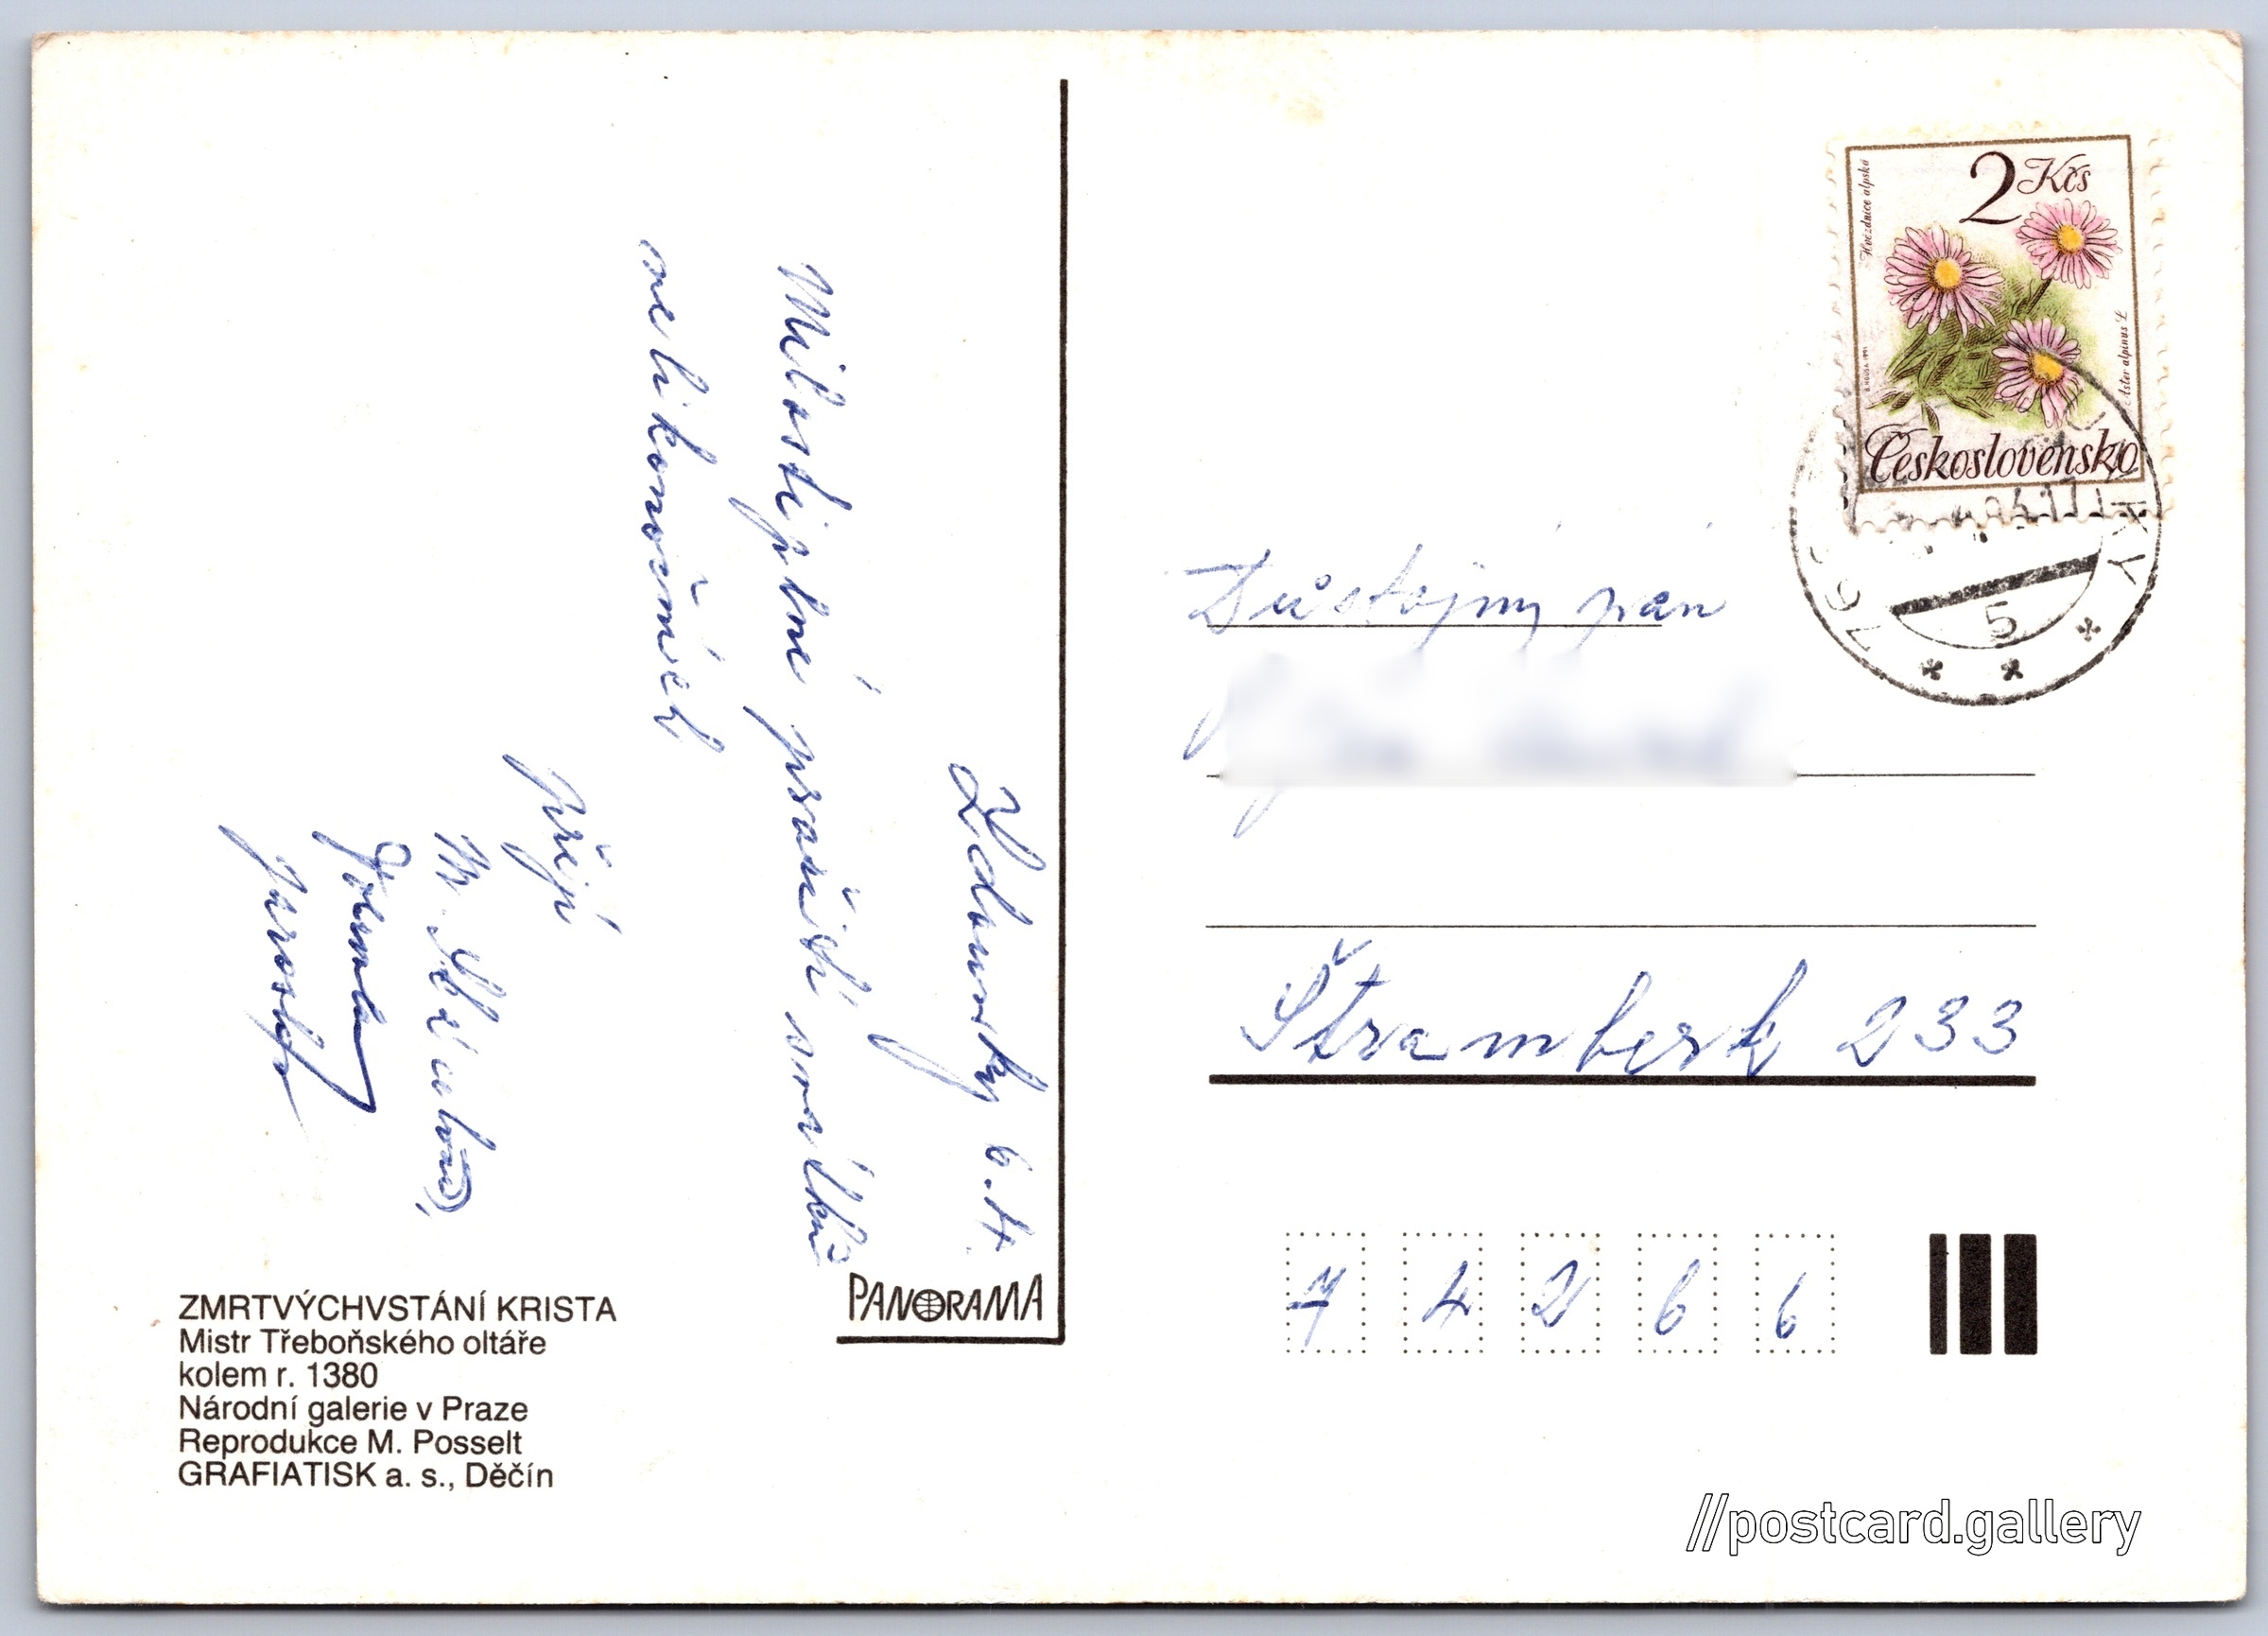 Zdounky 6.4.
Milostiplné prožití svátků
velikonočních
přejí
Jarmila
Jaroslav
ZMRTVÝCHVSTÁNÍ KRISTA
Mistr Třeboňského oltáře
kolem r. 1380
Národní galerie v Praze
Reprodukce M. Posselt
GRAFIATISK a. s., Děčín
PANORAMA
2 Kčs
Hvězdnice alpská
Aster alpinus L
Československo
5
Důstojný pan
Štramberk 233
7 4 2 6 6
//postcard.gallery